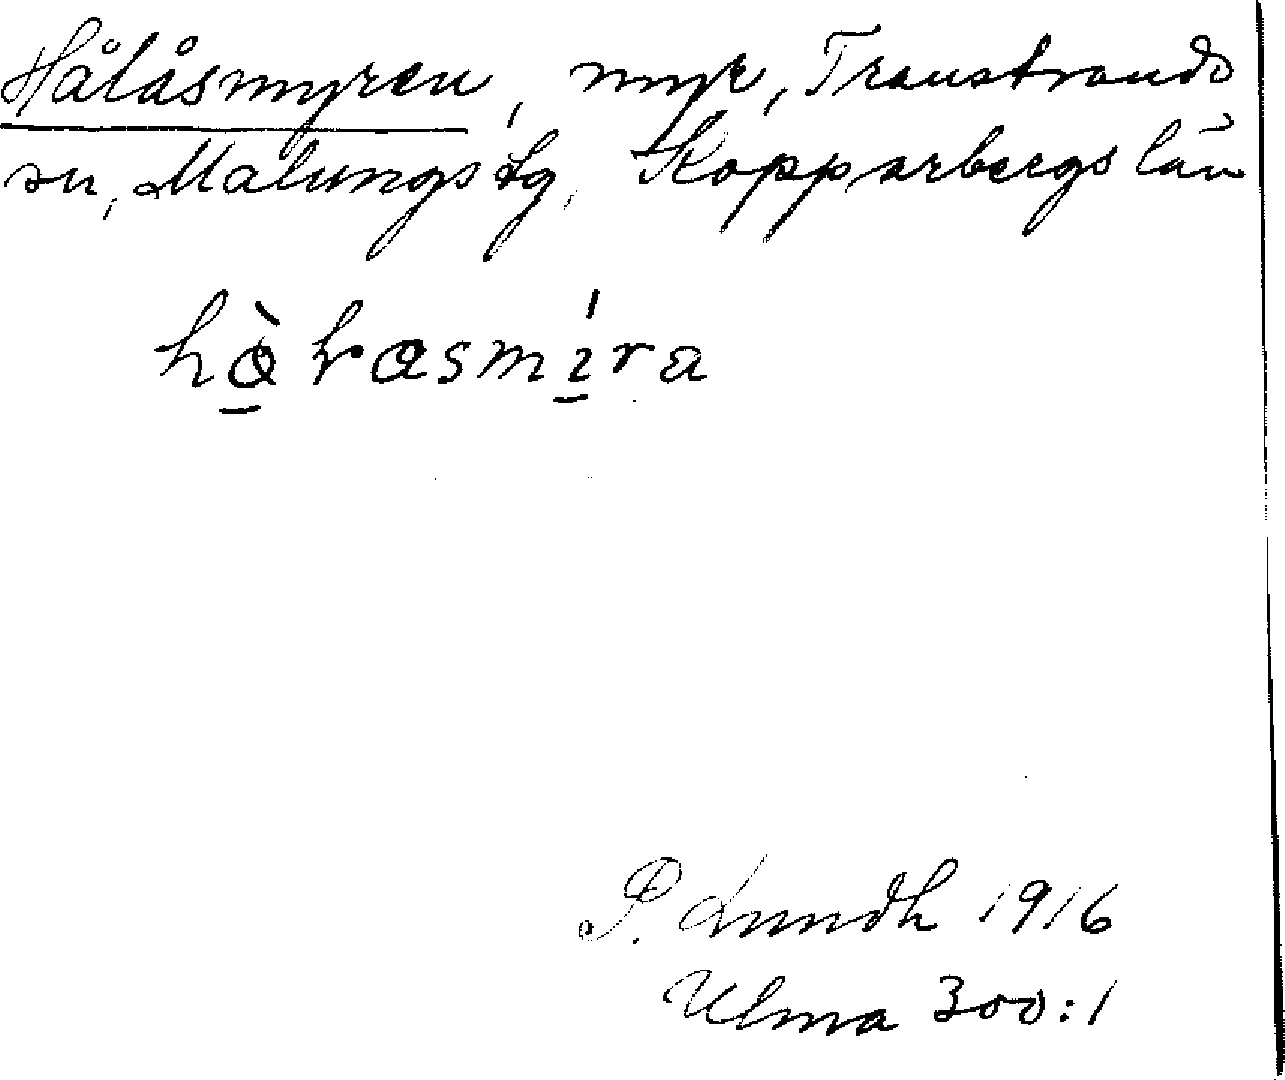 Hålåsmyren, myr, Transtrands
sn, Malungs tg, Kopparbergs län
P. Lundh 1916
Ulma 300:1